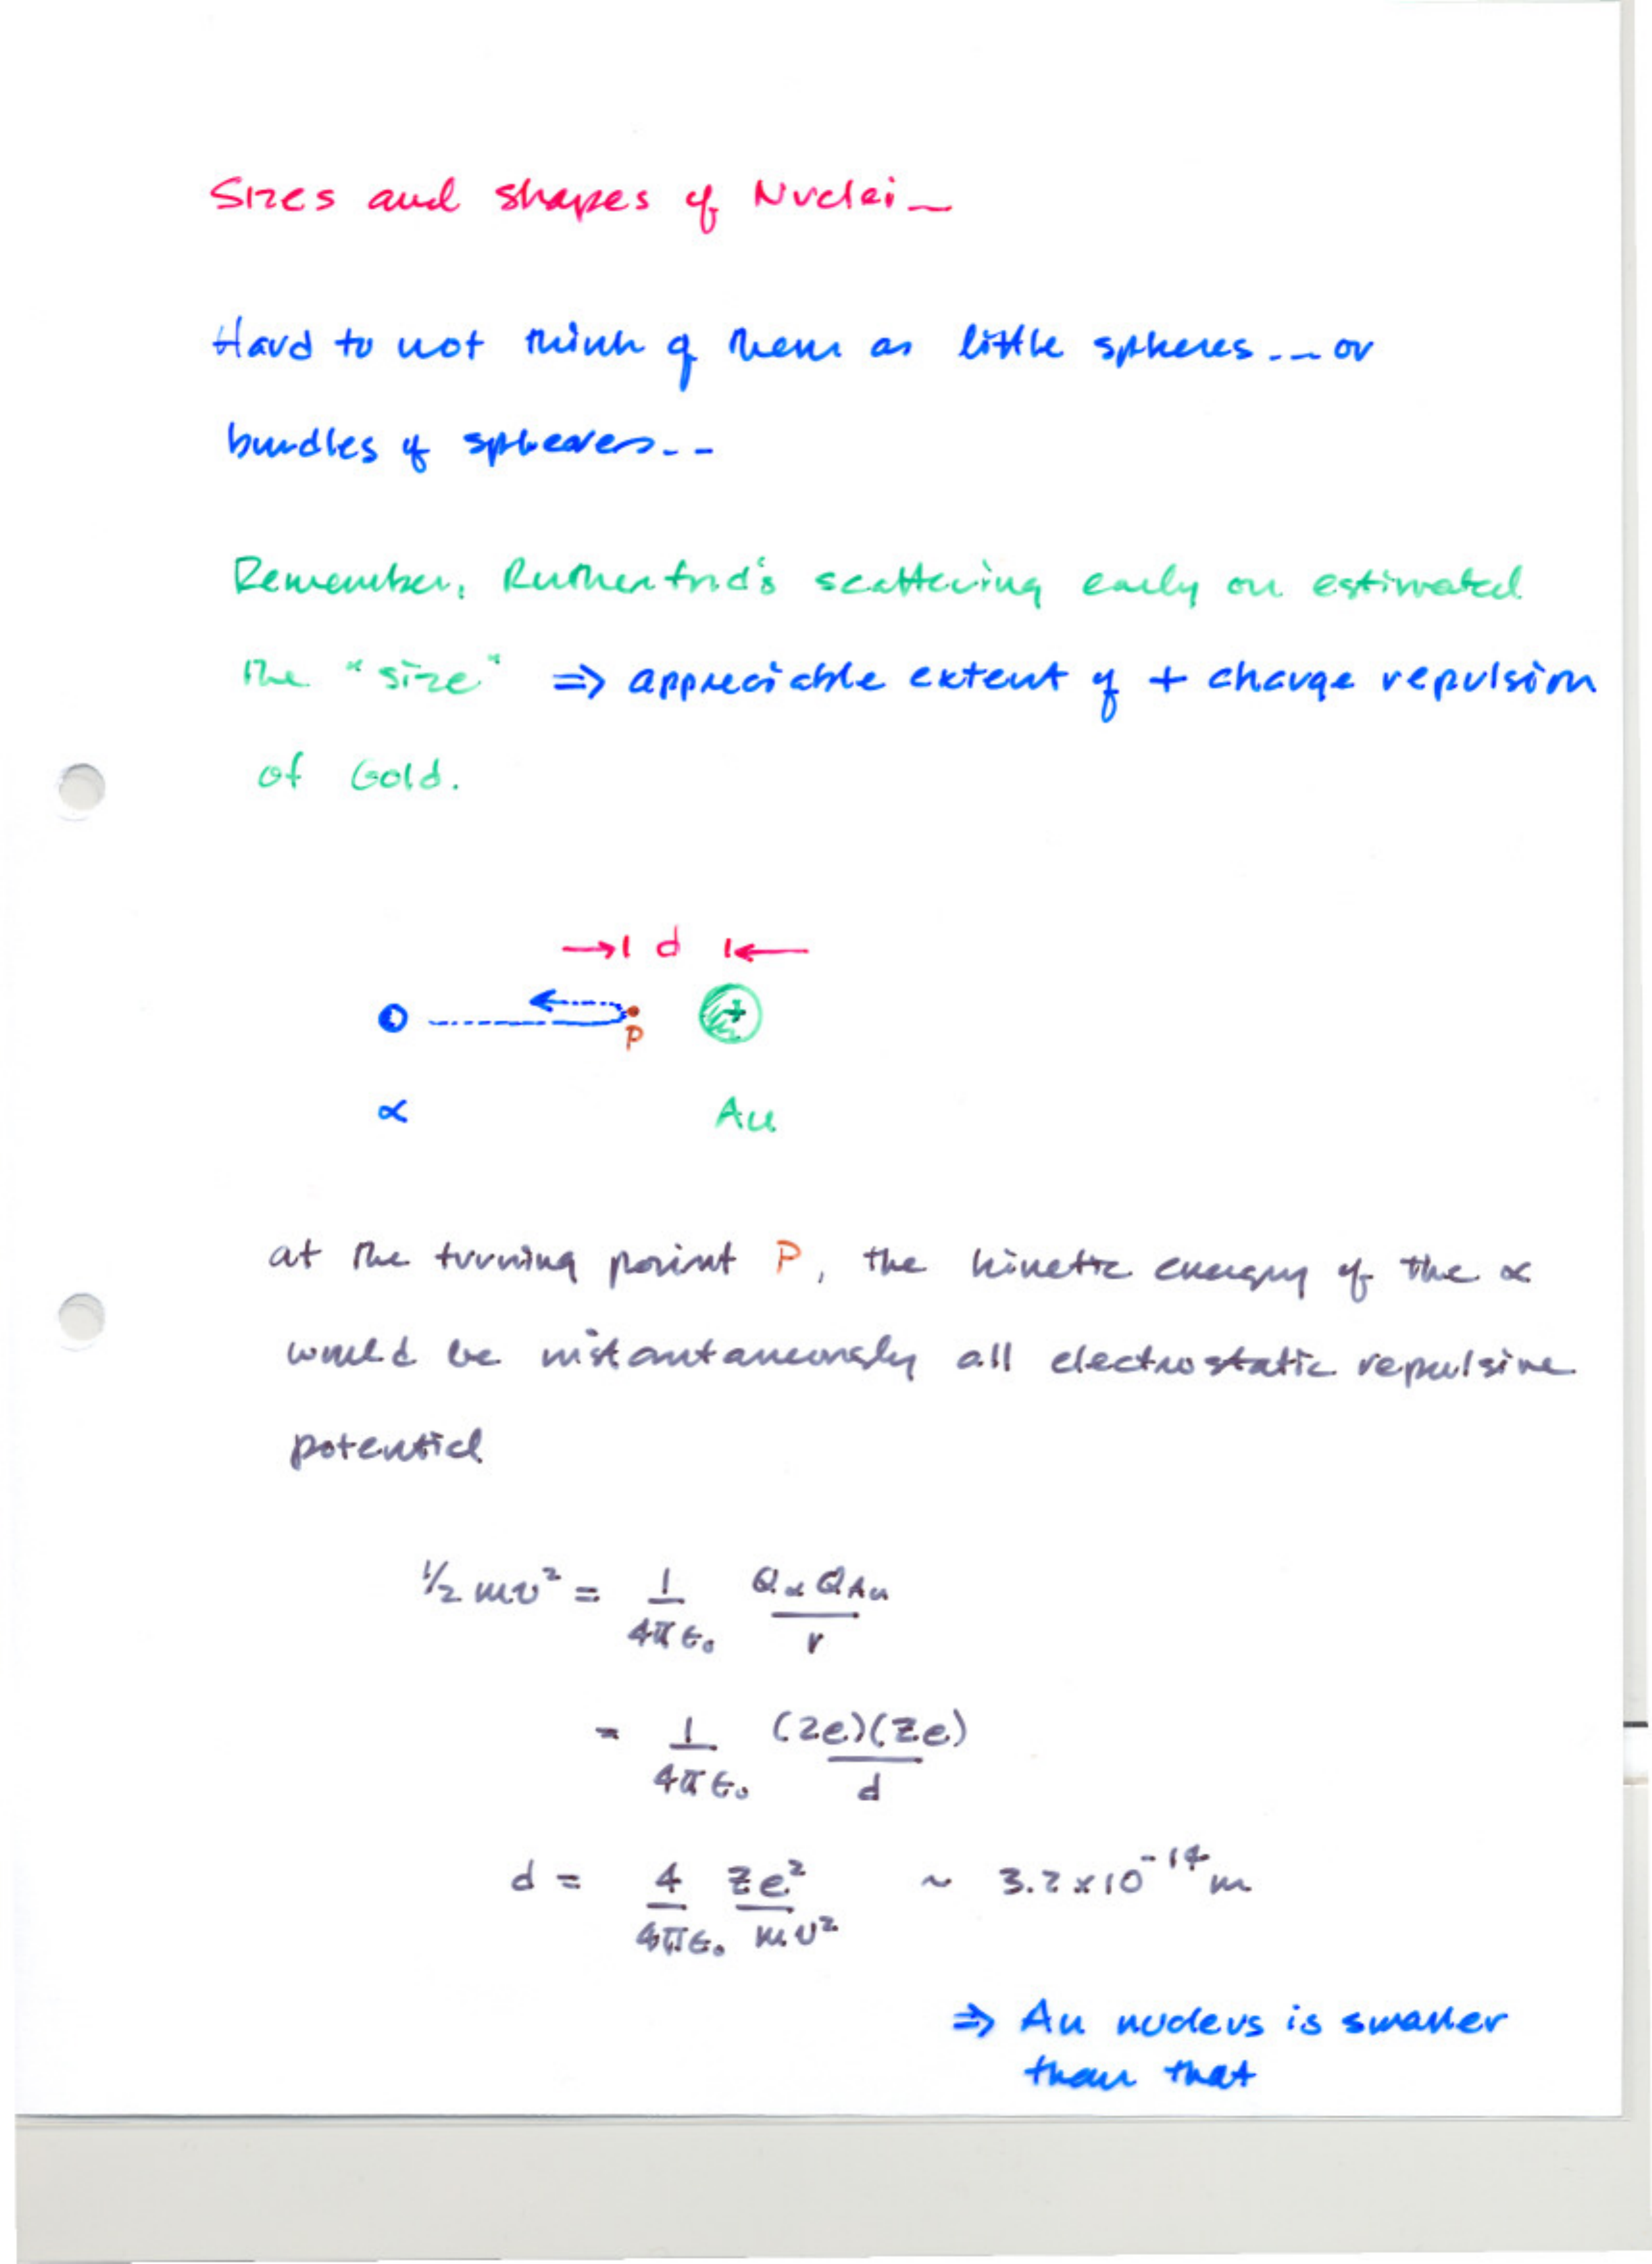 Sizes and shapes of Nuclei—
Hard to not think of them as little spheres... or
bundles of spheares--
Remember, Rutherford's scattering early on estimated
the "size" ⇒ appreciable extent of + charge repulsion
of Gold.
→| d |←
P
+
α Au
at the turning point P, the kinetic energy of the α
would be instantaneously all electrostatic repulsive
potential
1/2 mv² = 1/4πε₀ QαQAu/r
= 1/4πε₀ (2e)(Ze)/d
d = 4/4πε₀ Ze²/mv² ~ 3.2×10⁻¹⁴ m
⇒ Au nucleus is smaller
than that